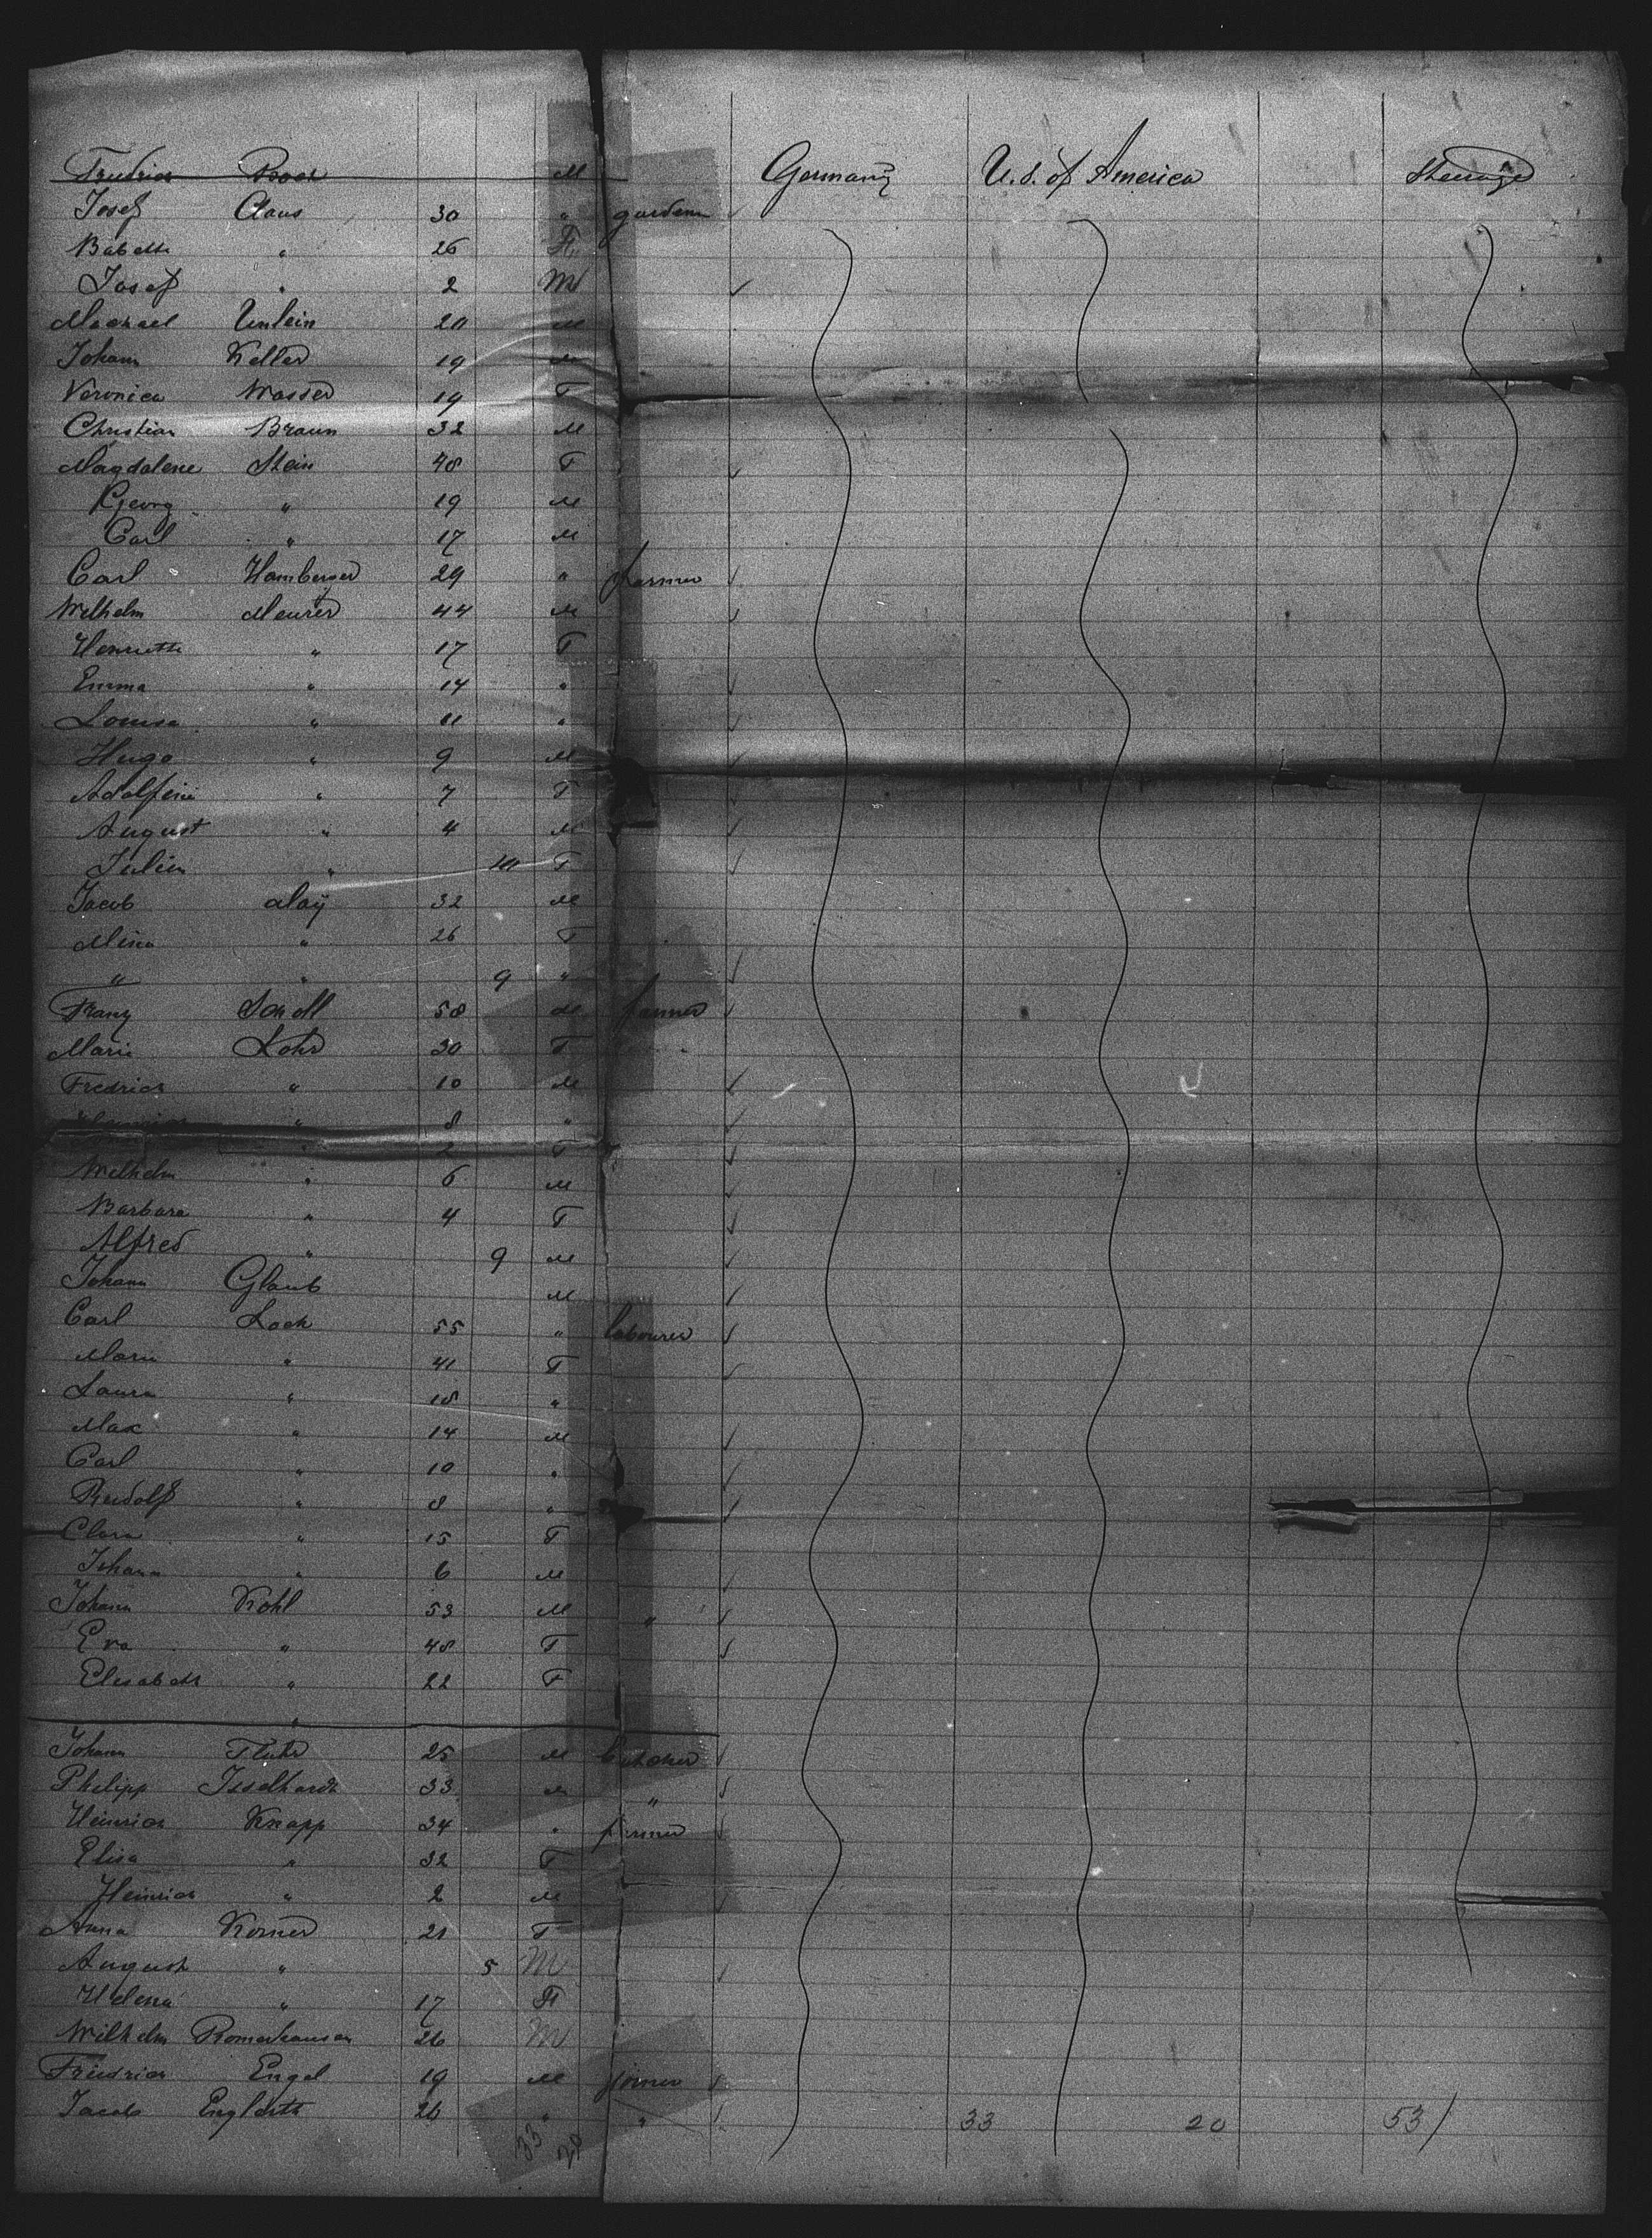 Friedrich Boch M Germany U.S. of America Steerage
Josef Claus 30 " gardener
Babette " 26 F
Josef " 2 M
Michael Umlein 20 M
Johann Keller 19 M
Veronica Wasser 19 F
Christian Braun 32 M
Magdalene Stein 48 F
Georg " 19 M
Carl " 17 M
Carl Hamberger 29 " farmer
Wilhelm Meurer 44 M
Henriette " 17 F
Emma " 14 "
Louise " 11 "
Hugo " 9 M
Adolfine " 7 F
August " 4 M
Julien " 10 F
Jacob May 32 M
Mina " 26 F
" " 9 "
Franz Scholl 58 M farmer
Marie Lohr 30 F
Fredrich " 10 M
Heinrich " 8 "
" 2 F
Wilhelm " 6 M
Barbara " 4 F
Alfred " 9 M
Johann Glaub M
Carl Loch 55 " labourer
Marie " 41 F
Laura " 18 "
Max " 14 M
Carl " 10 "
Rudolf " 8 "
Clara " 15 F
Johann " 6 M
Johann Kohl 53 M "
Eva " 48 F
Elisabeth " 22 F
"
Johann 25 M butcher
Philipp Isselhardt 33 M "
Heinrich Knapp 34 " farmer
Elisa " 32 F
Heinrich " 2 M
Anna Korner 21 F
August " 5 M
Helena " 17 F
Wilhelm Romerhausen 26 M
Friedrich Engel 19 M joiner
Jacob Englerth 26 " " 33 20 53/
33 20